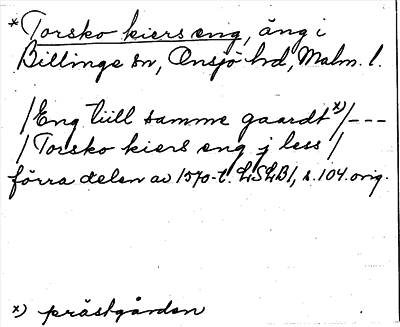 *Torsko kiers eng, äng i
Billinge sn, Onsjö hd, Malm. l.
/Eng tiill samme gaardt x)/---
/Torsko kiers eng j less/
förra delen av 1570-t. LSLB1, s. 104. orig.
x) prästgården